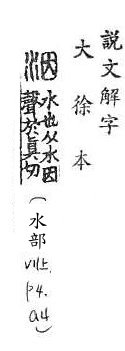 說文解字
大徐本
洇
水也从水因
聲於眞切
(水部
P4.
a4)